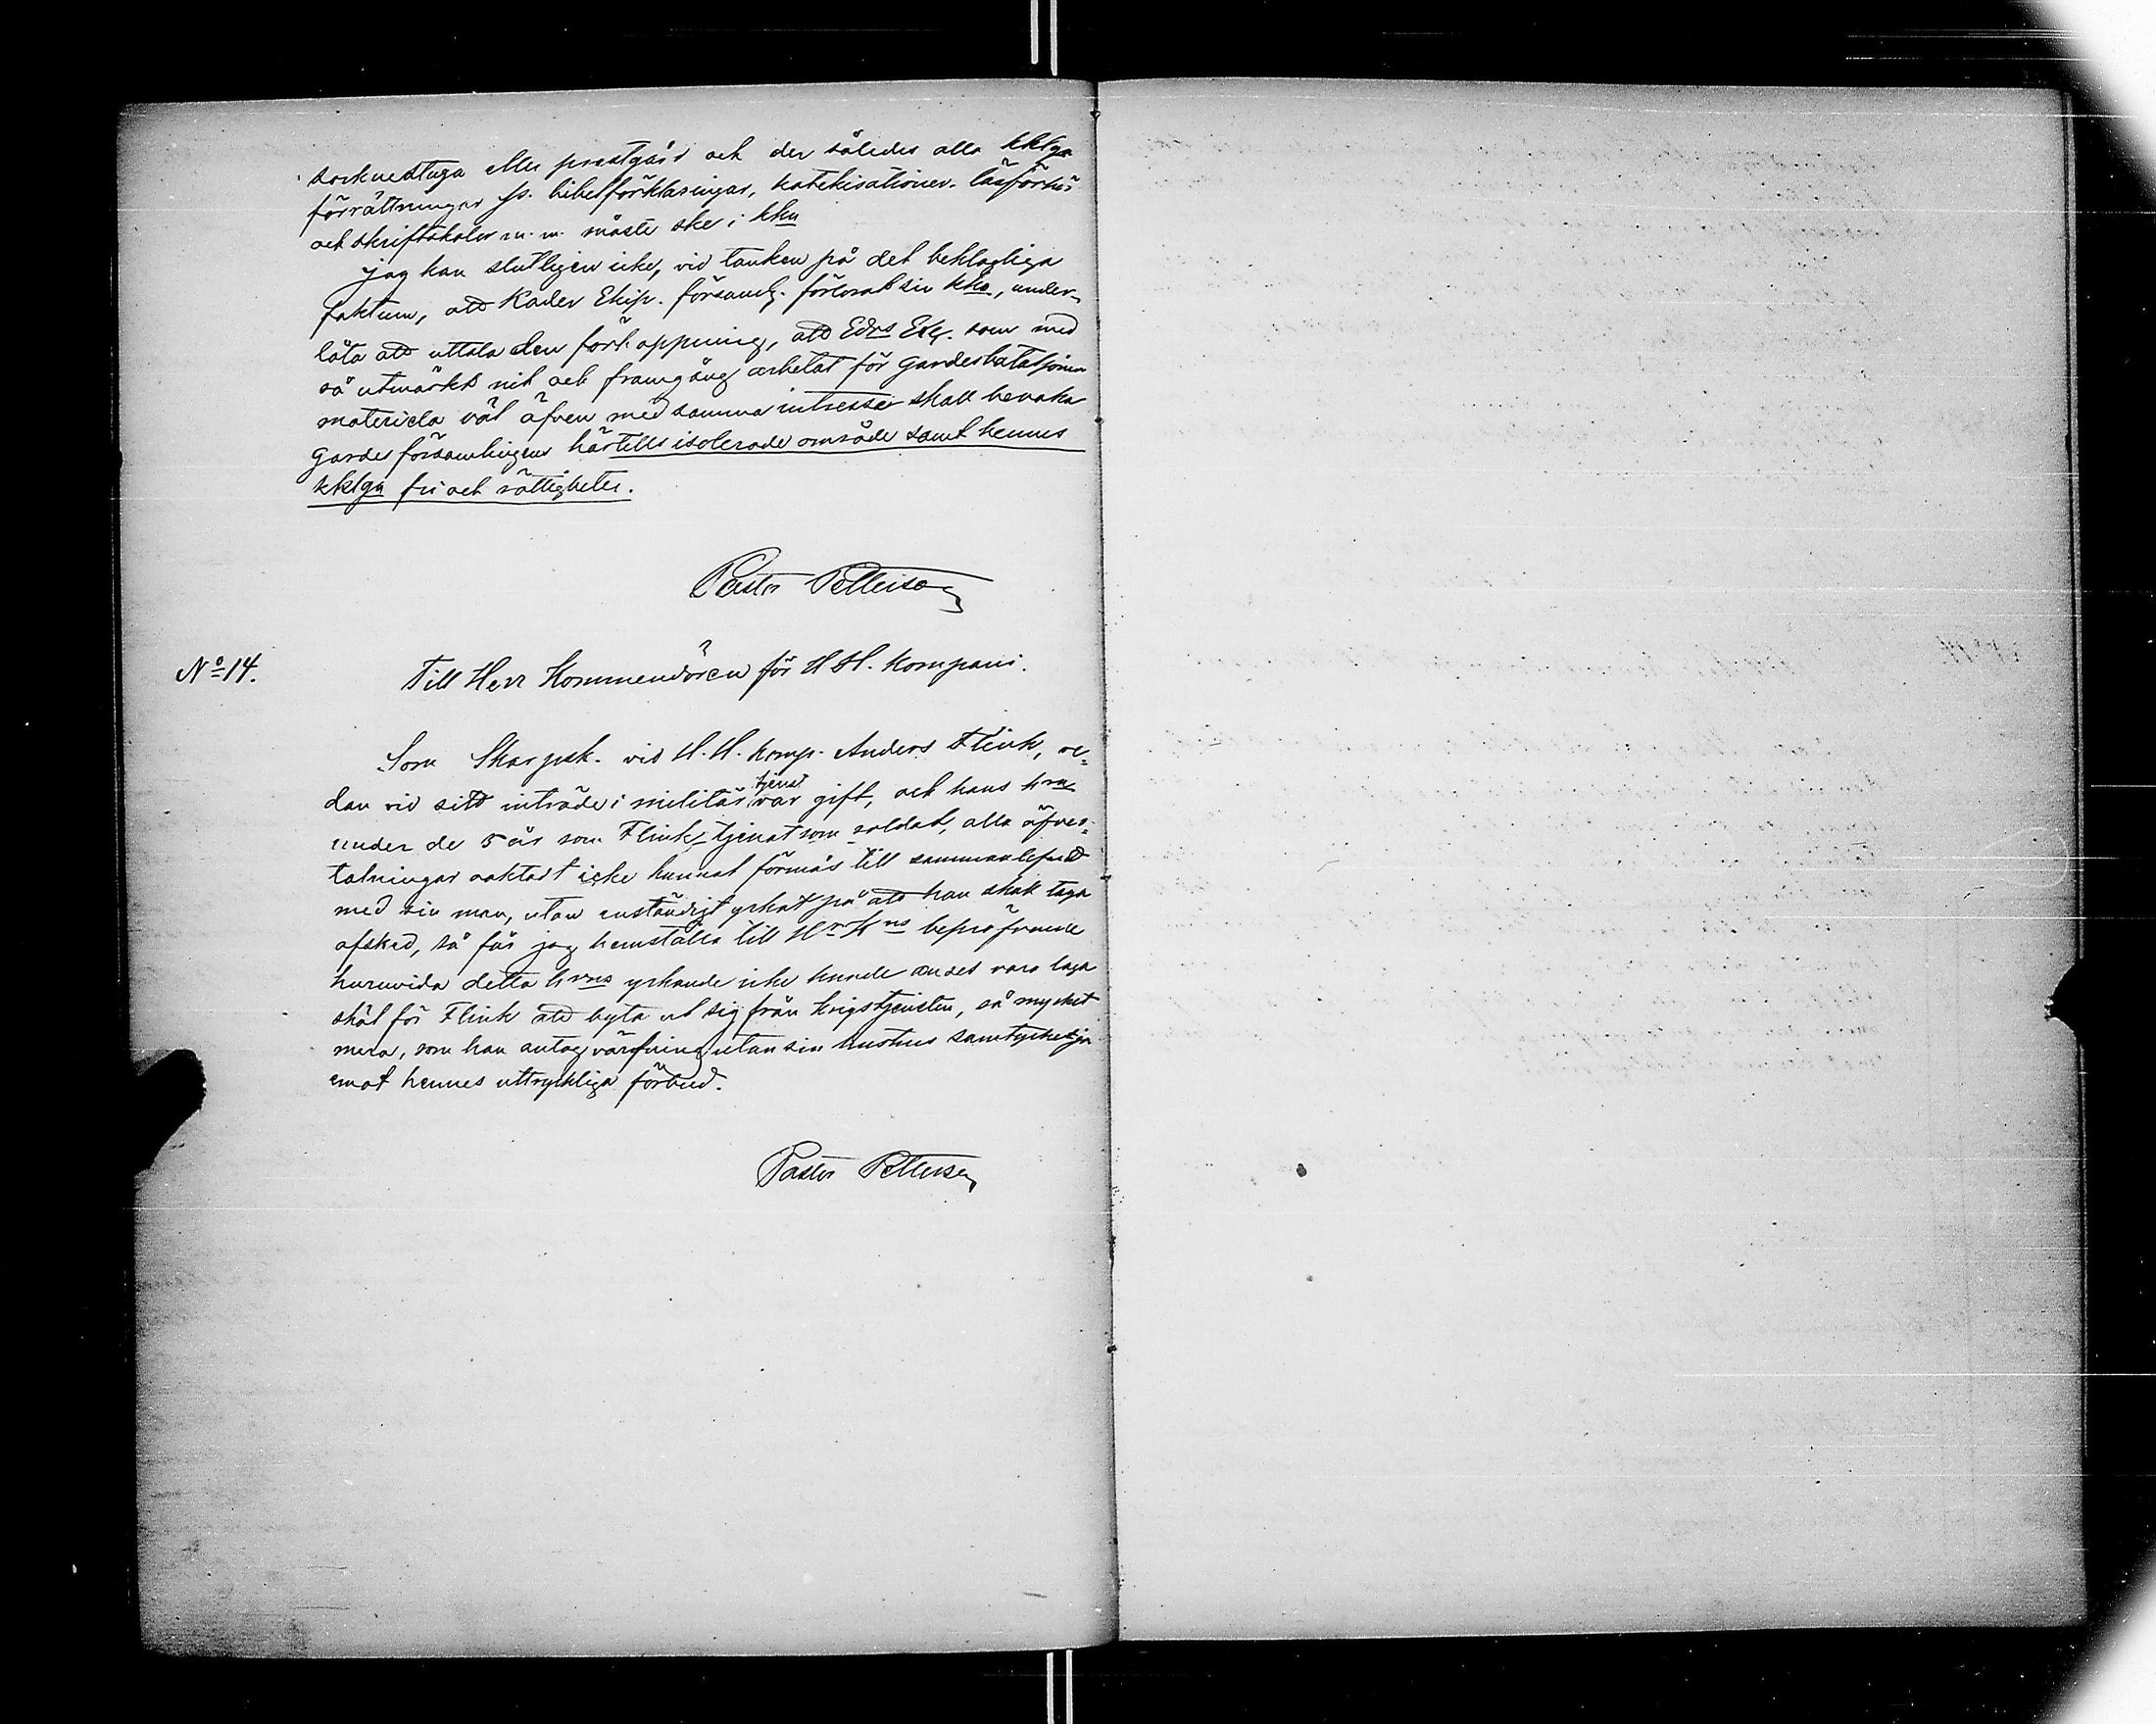 socknestuga eller prestgård och der således alla kklga
förrättningar ss. bibelförklaringar, katekisationer, läsförhör
och skriftskolor m. m. måste ske i kkn
jag kan slutligen icke, vid tanken på det beklagliga
faktum, att Kader Ekip. församl. förlorat sin kka, under-
låta att uttala den förhoppning, att Edrs Exc. som med
så utmärkt nit och framgång arbetat för Gardesbataljonen
materiela väl äfven med samma intresse skall bevaka
Gardesförsamlingens härtills isolerade område samt hennes
kklga fri och rättigheter.
Pastor Petterson
No 14.
Till Herr Kommendören för H H. Kompani.
Som Skarpsk. vid H. H. Komp. Anders Flink, re-
dan vid sitt inträde i militärtjenst var gift, och hans hru
under de 5 år som Flink tjenat som soldat, alla öfver-
talningar oaktadt icke kunnat förmås till sammanlefnad
med sin man, utan enständigt yrkat på att han skall taga
afsked, så får jag hemställa till Hr Kns bepröfvande
huruvida detta hrus yrkande icke kunde anses vara laga
skäl för Flink att byta ut sig från krigstjensten, så mycket
mera, som han antog värfning utan sin hustrus samtycke ja
emot hennes uttryckliga förbud.
Pastor Petterson